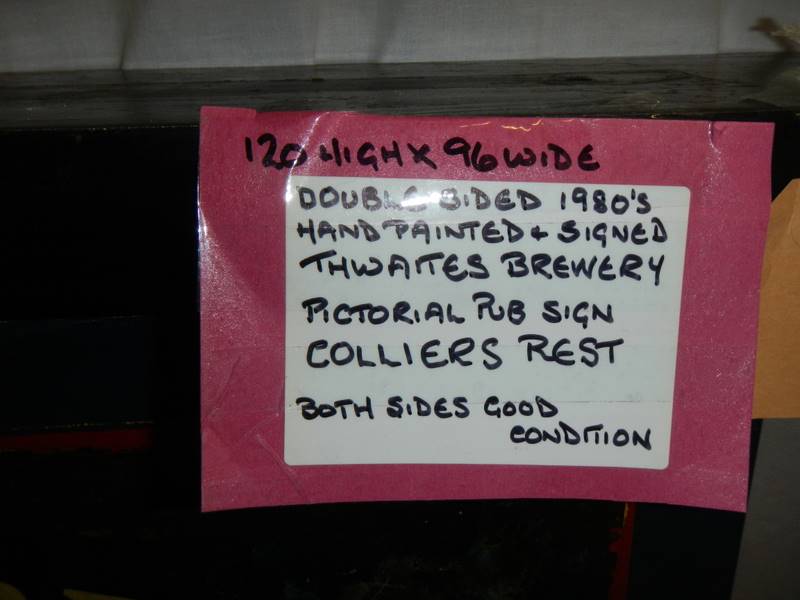 120 HIGH X 96 WIDE
DOUBLE SIDED 1980'S
HAND PAINTED + SIGNED
THWAITES BREWERY
PICTORIAL PUB SIGN
COLLIERS REST
BOTH SIDES GOOD
CONDITION